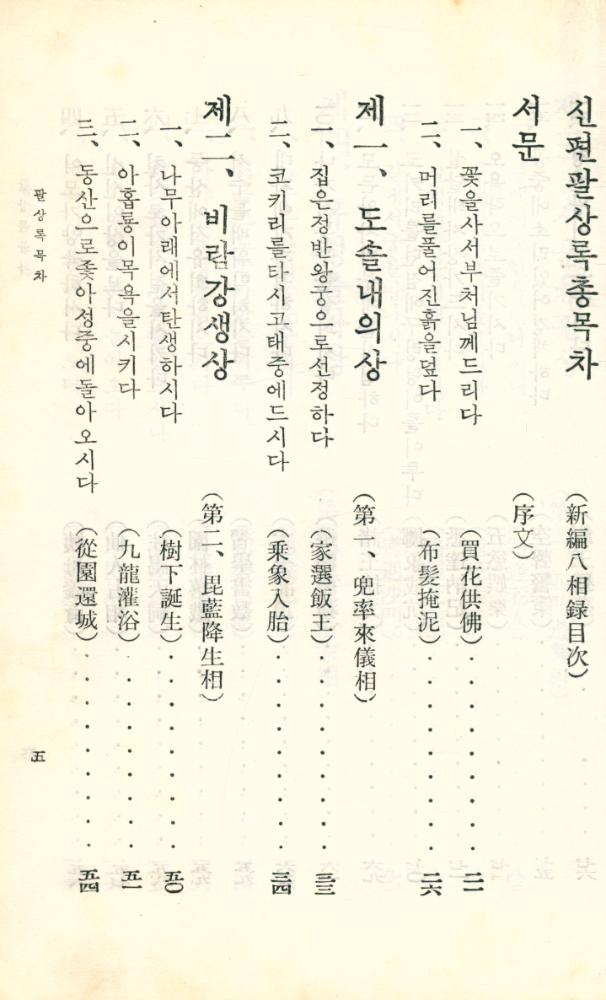 신편팔상록총목차 (新編八相錄目次)
서문 (序文)
一、꽃을사서부처님께드리다 (買花供佛)・・・・・・・・・二一
二、머리를풀어진흙을덮다 (布髮掩泥)・・・・・・・・・二六
제一、도솔내의상 (第一、兜率來儀相)
一、집은정반왕궁으로선정하다 (家選飯王)・・・・・・・・・三三
二、코키리를타시고태중에드시다 (乘象入胎)・・・・・・・・・三四
제二、비람강생상 (第二、毘藍降生相)
一、나무아래에서탄생하시다 (樹下誕生)・・・・・・・・・五〇
二、아홉룡이목욕을시키다 (九龍灌浴)・・・・・・・・・五一
三、동산으로좇아성중에돌아오시다 (從園還城)・・・・・・・・・五四
팔상록목차
五